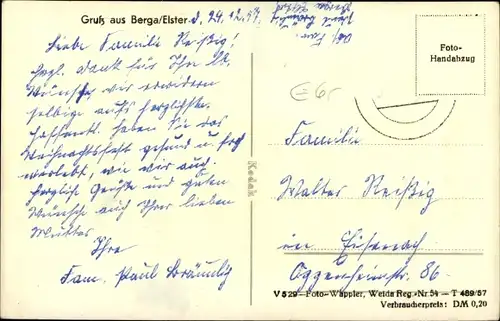 Gruß aus Berga/Elster d. 29.12.57
Abs. Fam.
Paul Bräunlig
Berga/Elster
Foto-
Handabzug
Liebe Familie Reißig!
Herzl. Dank für Ihre lb.
Wünsche, wir erwidern
selbige aufs herzlichste.
Hoffentl. haben Sie das
Weihnachtsfest gesund u. froh
verlebt, wie wir auch.
Herzliche Grüße und guten
Wunsch auch Ihrer lieben
Mutter
Ihre
Fam. Paul Bräunlig
E6,-
Kodak
Familie
Walter Reißig
in Eisenach
Oggenheimstr. 86-
V 529 - Foto-Wappler, Weida Reg.-Nr. 54 - T 489/57
Verbraucherpreis: DM 0,20